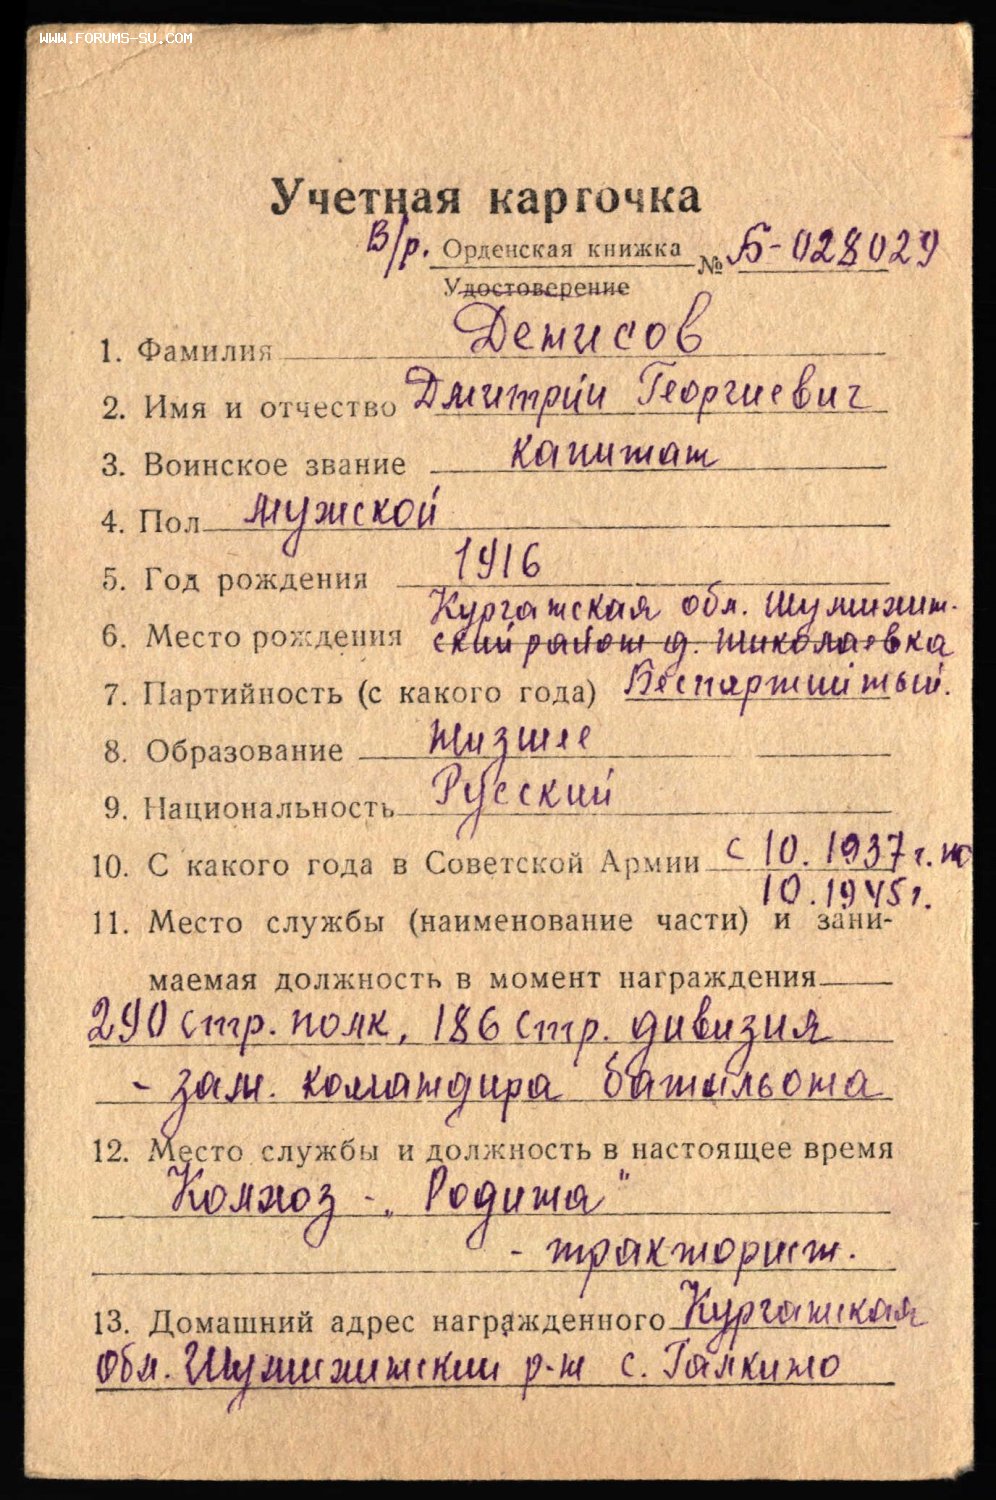 WWW.FORUMS-SU.COM
Учетная карточка
В/р. Орденская книжка № Б-028029
Удостоверение
1. Фамилия Денисов
2. Имя и отчество Дмитрий Георгиевич
3. Воинское звание капитан
4. Пол мужской
5. Год рождения 1916
Курганская обл. Шумихин-
6. Место рождения ский район д. Николаевка
7. Партийность (с какого года) Беспартийный.
8. Образование низшее
9. Национальность Русский
10. С какого года в Советской Армии с 10.1937 г. по
10.1945 г.
11. Место службы (наименование части) и зани-
маемая должность в момент награждения
290 стр. полк, 186 стр. дивизия
- зам. командира батальона
12. Место службы и должность в настоящее время
Колхоз - „Родина"
- тракторист.
13. Домашний адрес награжденного Курганская
обл. Шумихинский р-н с. Галкино